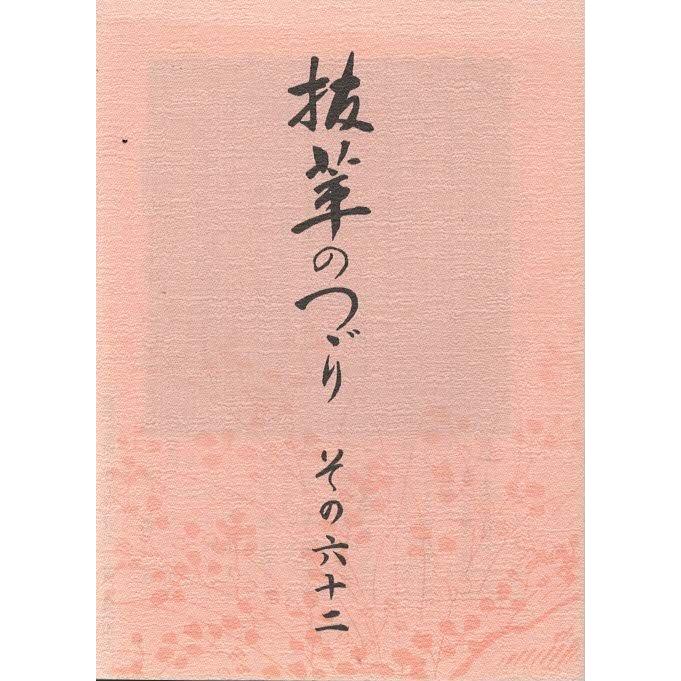 抜萃のつゞり その六十二